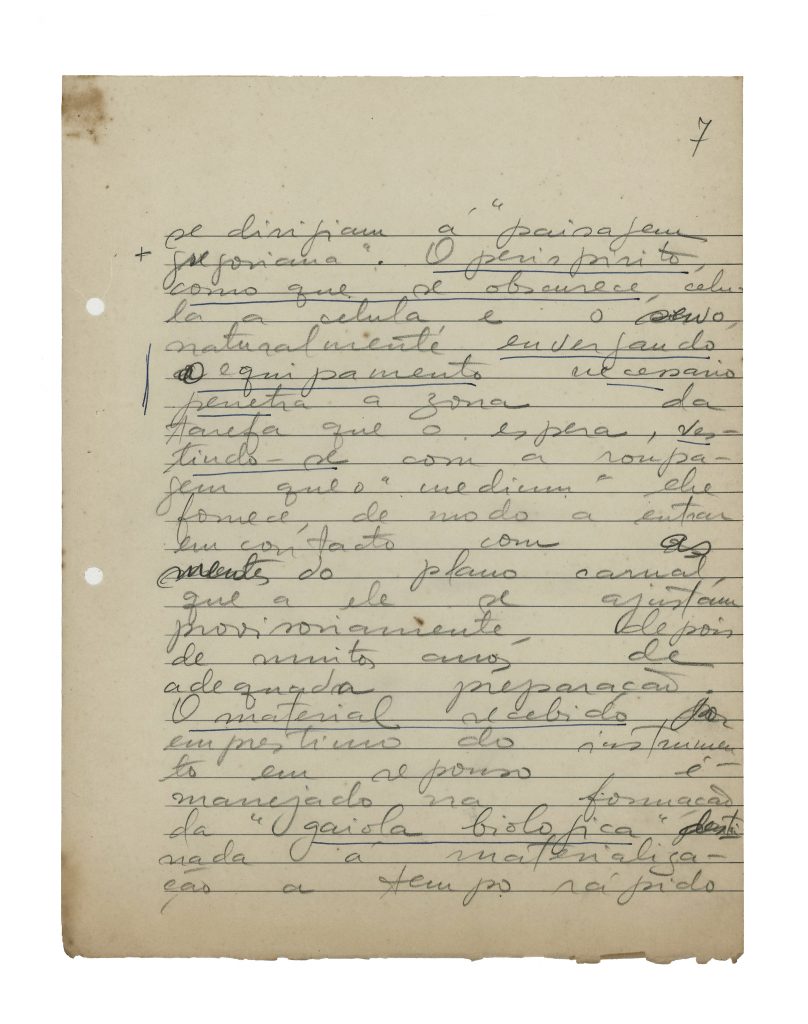 7
se dirigiam á "paisagem
+ gregoriana". O perispirito,
como que se obscurece, célu-
la a celula e o servo,
naturalmente envergando
o equipamento necessario
penetra a zona da
tarefa que o espera, ves-
tindo-se com a roupa-
gem que o "medium" lhe
fornece, de modo a entrar
em contacto com as
mentes do plano carnal,
que a ele se ajustam
provisoriamente, depois
de muitos anos de
adequada preparação.
O material recebido, por
emprestimo do instrumen-
to em repouso é
manejado na formação
da "gaiola biologica" desti
nada á materializa-
ção a tempo rápido